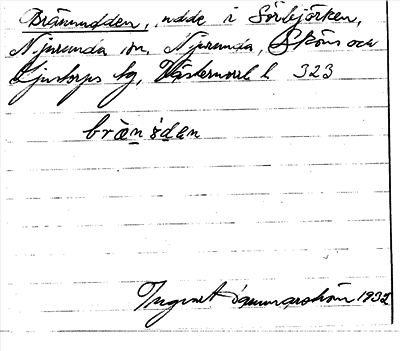 Brämudden, udde i Sörbjörken,
Njurunda sn, Njurunda, Sköns och
Ljustorps tg, Västernorrl l 323
bræ̀n ùden
Ingvart Hammarström 1932